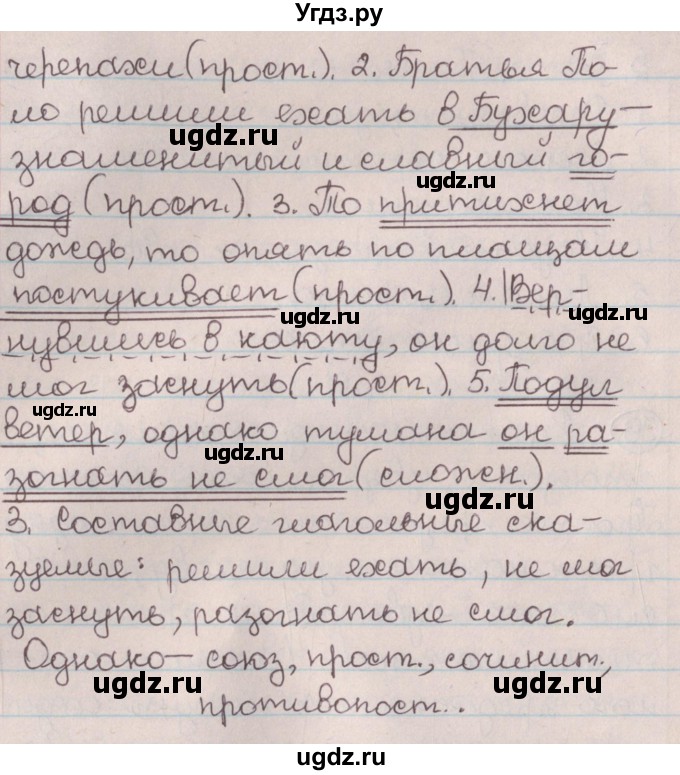 Угдз.ру
черепахи (прост.). 2. Братья По-
ло решили ехать в Бухару –
знаменитый и славный го-
род (прост.). 3. То притихнет
дождь, то опять по плащам
постукивает (прост.). 4. |Вер-
нувшись в каюту, он долго не
мог заснуть (прост.). 5. Подул
ветер, однако тумана он ра-
зогнать не смог (сложен.).
3. Составные глагольные ска-
зуемые: решили ехать, не мог
заснуть, разогнать не смог.
Однако – союз, прост., сочинит.,
противопост..
ugdz.ru
ugdz.ru
ugdz.ru
ugdz.ru
ugdz.ru
ugdz.ru
ugdz.ru
ugdz.ru
ugdz.ru
ugdz.ru
ugdz.ru
ugdz.ru